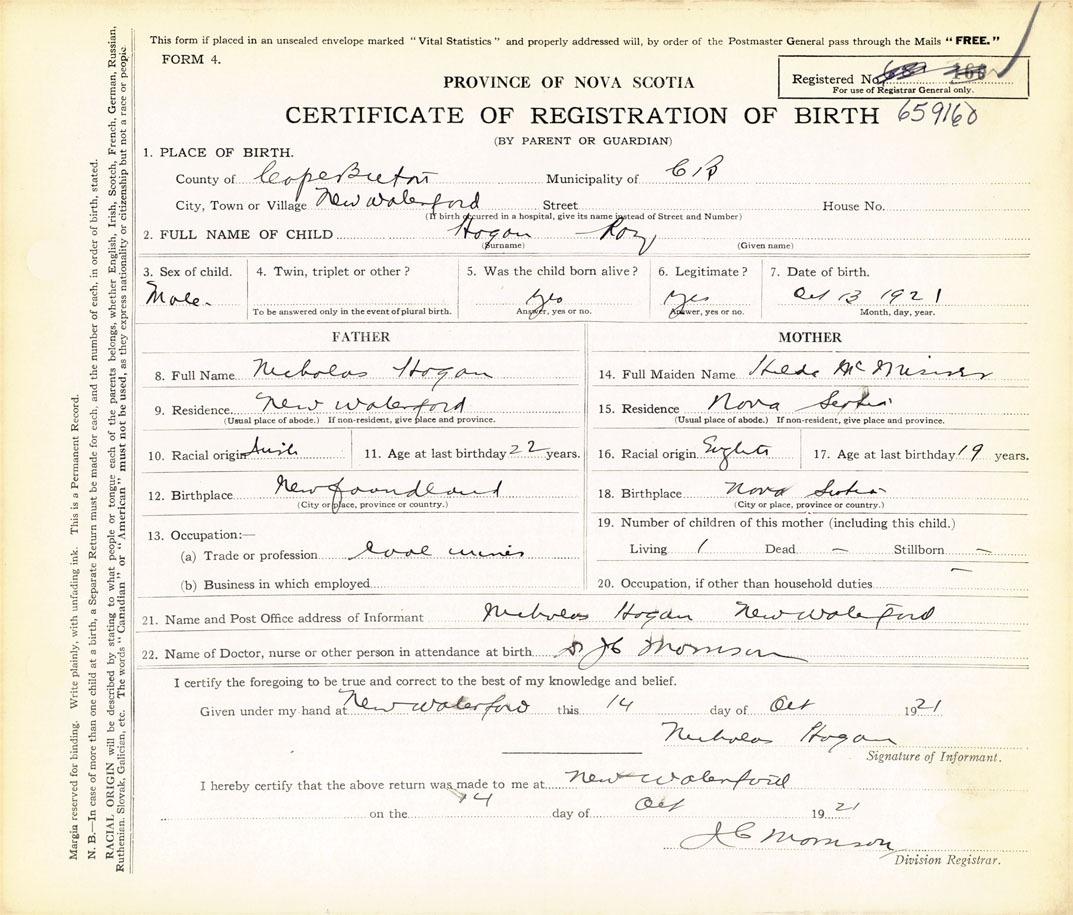 This form if placed in an unsealed envelope marked "Vital Statistics" and properly addressed will, by order of the Postmaster General pass through the Mails "FREE."
FORM 4.
PROVINCE OF NOVA SCOTIA
Registered No.
For use of Registrar General only.
CERTIFICATE OF REGISTRATION OF BIRTH 659160
(BY PARENT OR GUARDIAN)
1. PLACE OF BIRTH.
County of Cape Breton Municipality of C B
City, Town or Village New Waterford Street House No.
(If birth occurred in a hospital, give its name instead of Street and Number)
2. FULL NAME OF CHILD Hogan Roy
(Surname) (Given name)
3. Sex of child. 4. Twin, triplet or other? 5. Was the child born alive? 6. Legitimate? 7. Date of birth.
Male. yes yes Oct 13 1921
To be answered only in the event of plural birth. Answer, yes or no. Answer, yes or no. Month, day, year.
FATHER MOTHER
8. Full Name Nicholas Hogan 14. Full Maiden Name Hilda Mc
9. Residence New Waterford 15. Residence Nova Scotia
(Usual place of abode.) If non-resident, give place and province. (Usual place of abode.) If non-resident, give place and province.
10. Racial origin Irish 11. Age at last birthday 22 years. 16. Racial origin 17. Age at last birthday 19 years.
12. Birthplace Newfoundland 18. Birthplace Nova Scotia
(City or place, province or country.) (City or place, province or country.)
13. Occupation:— 19. Number of children of this mother (including this child.)
(a) Trade or profession Coal miner Living 1 Dead — Stillborn —
(b) Business in which employed 20. Occupation, if other than household duties —
21. Name and Post Office address of Informant Nicholas Hogan New Waterford
22. Name of Doctor, nurse or other person in attendance at birth Dr JC Morrison
I certify the foregoing to be true and correct to the best of my knowledge and belief.
Given under my hand at New Waterford this 14 day of Oct 1921
Nicholas Hogan
Signature of Informant.
I hereby certify that the above return was made to me at New Waterford
on the 14 day of Oct 1921
JC Morrison
Division Registrar.
Margin reserved for binding. Write plainly, with unfading ink. This is a Permanent Record.
N. B.—In case of more than one child at a birth, a Separate Return must be made for each, and the number of each, in order of birth, stated.
RACIAL ORIGIN will be described by stating to what people or tongue each of the parents belongs, whether English, Irish, Scotch, French, German, Russian,
Ruthenian, Slovak, Galician, etc. The words "Canadian" or "American" must not be used, as they express nationality or citizenship but not a race or people.